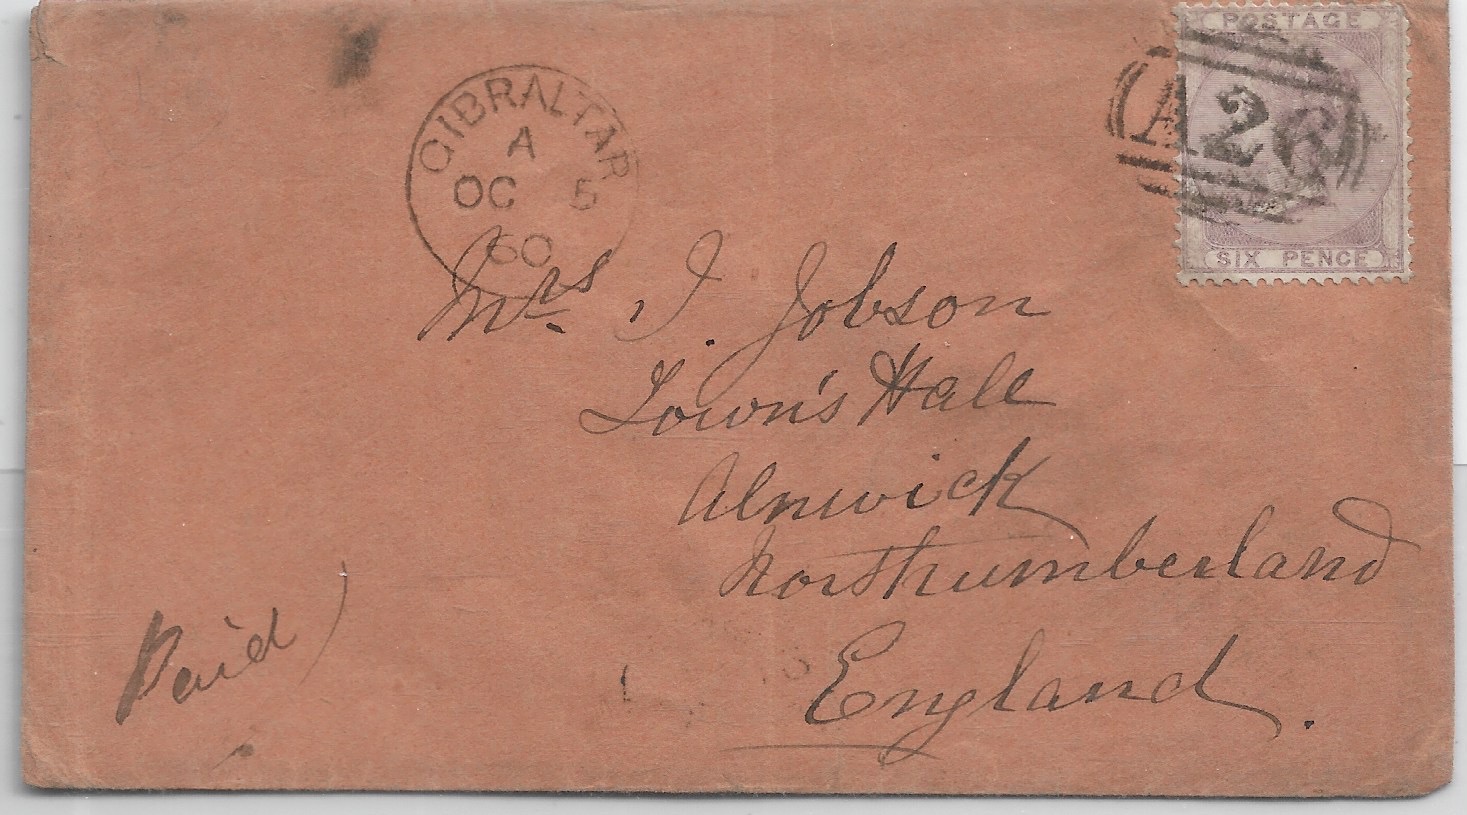 POSTAGE
A26
SIX PENCE
GIBRALTAR
A
OC 5
60
Mrs. J. Jobson
Town's Hall
Alnwick
Northumberland
England.
Paid